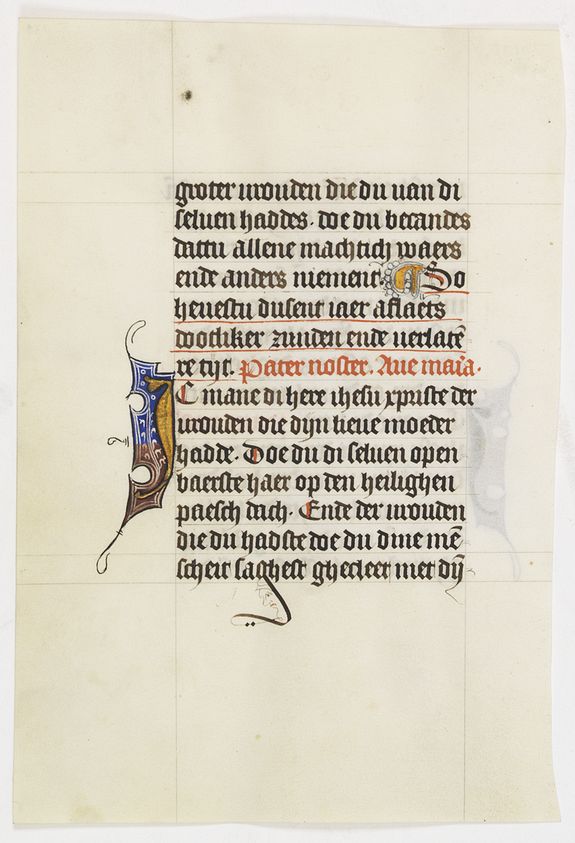 groter vrouden die du van di
seluen haddes. doe du becandes
dattu allene machtich waers
ende anders niement. So
heuestu dusent iaer aflaets
dootliker zunden ende uerlatē
re tijt. Pater noster. Aue maīa.
IC mane di here ihesu xpriste der
vrouden die dijn lieue moeder
hadde. Doe du di seluen open
baerste haer op den heilighen
paesch dach. Ende der vrouden
die du hadste doe du dine mē
scheit saghest ghecleet met dij̄